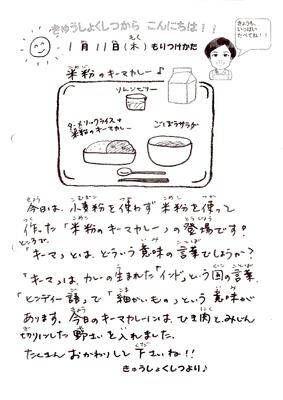 きゅうしょくしつから こんにちは！！
1月11日(木)もりつけかた
きょうも、
いっぱい
たべてね！！
米粉のキーマカレー♪
りんごゼリー
ターメリックライス+
米粉のキーマカレー
ごぼうサラダ
今日は、小麦粉を使わず米粉を使って
作った「米粉のキーマカレー」の登場です！
ところで、
「キーマ」とは、どういう意味の言葉でしょうか？
「キーマ」は、カレーの生まれた「インド」という国の言葉、
「ヒンディー語」で「細かいもの」という意味が
あります。今日のキーマカレーには、ひき肉と、みじん
切りにした野さいを入れました。
たくさんおかわりして下さいね！！
きゅうしょくしつより♪